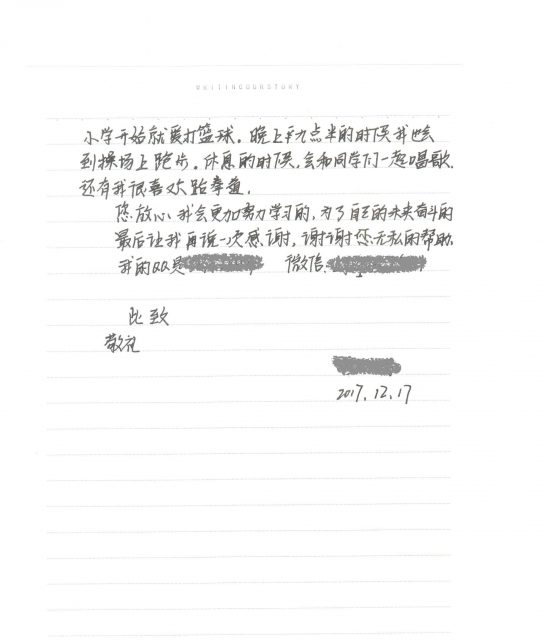 WRITINGOURSTORY
小学开始就爱打篮球。晚上九点半的时候我也会
到操场上跑步。休息的时候,会和同学们一起唱歌,
还有我很喜欢跆拳道。
您放心,我会更加努力学习的,为了自己的未来奋斗的
最后让我再说一次感谢,谢谢您无私的帮助,
我的QQ是 微信:
此致
敬礼
2017.12.17